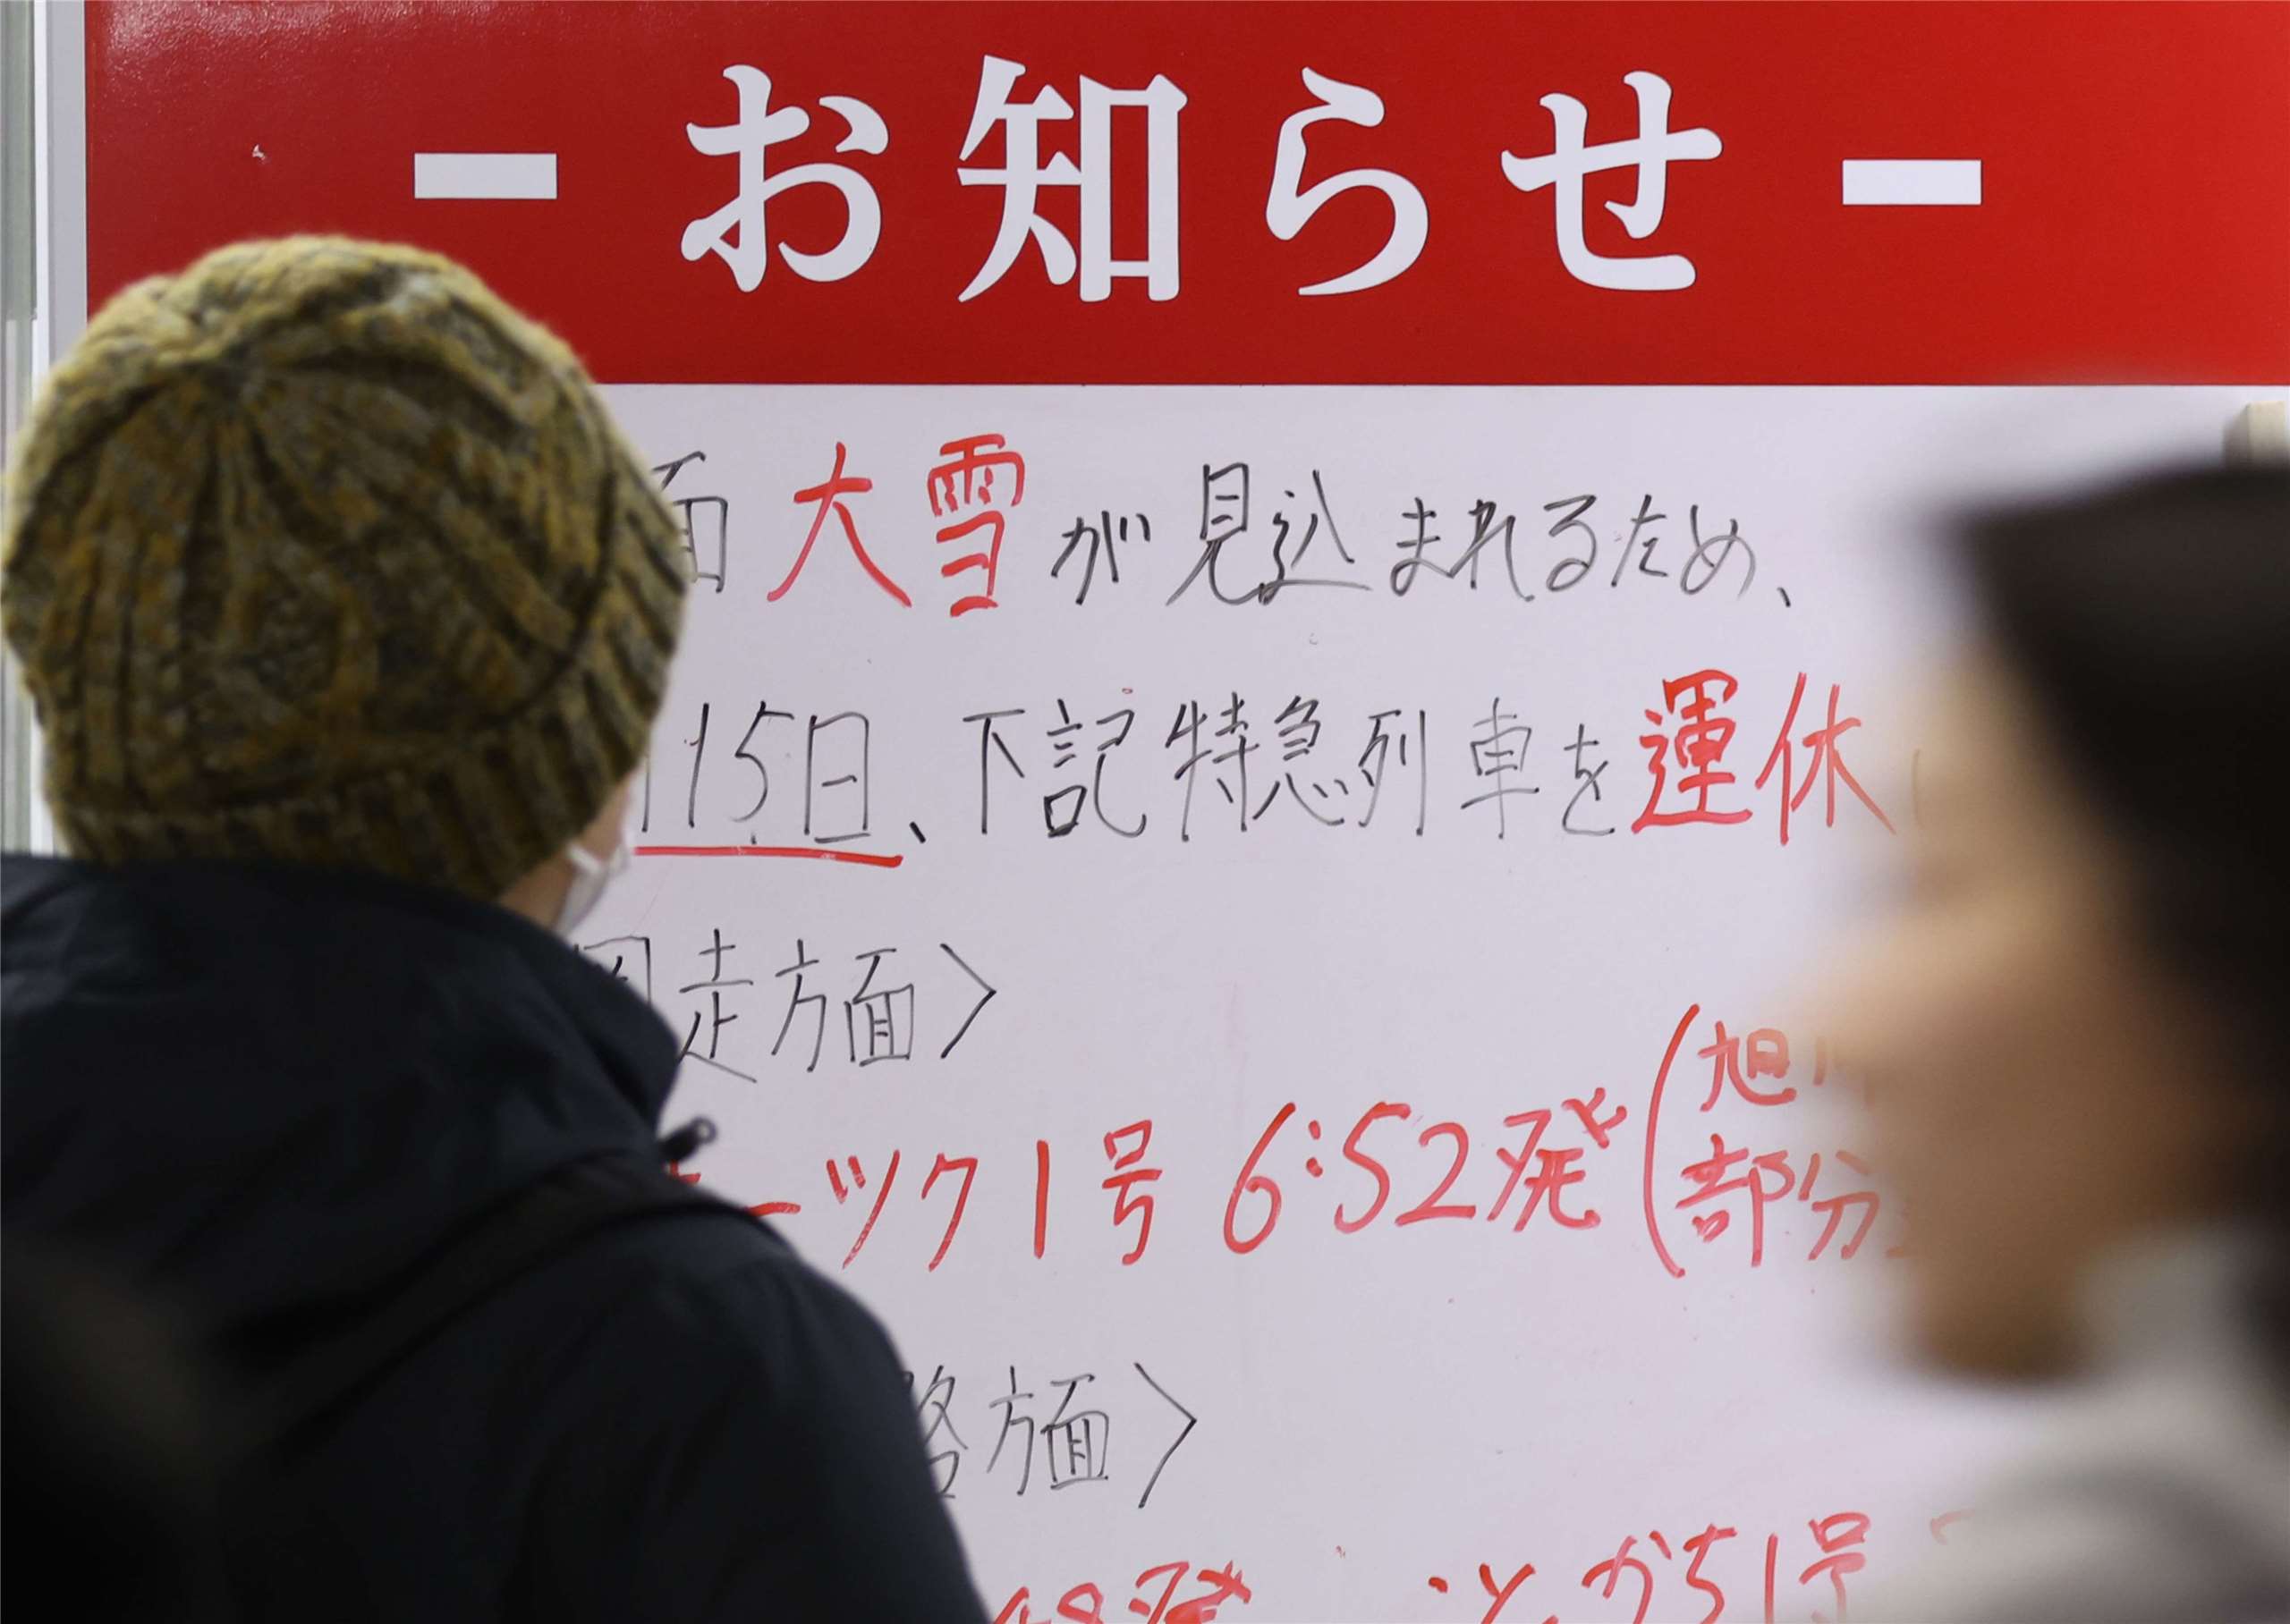 －お知らせ－
面 大雪が見込まれるため、
15日、下記特急列車を運休
走方面〉
ーツク1号 6:52発(旭
部分
路方面〉
48発 とかち1号